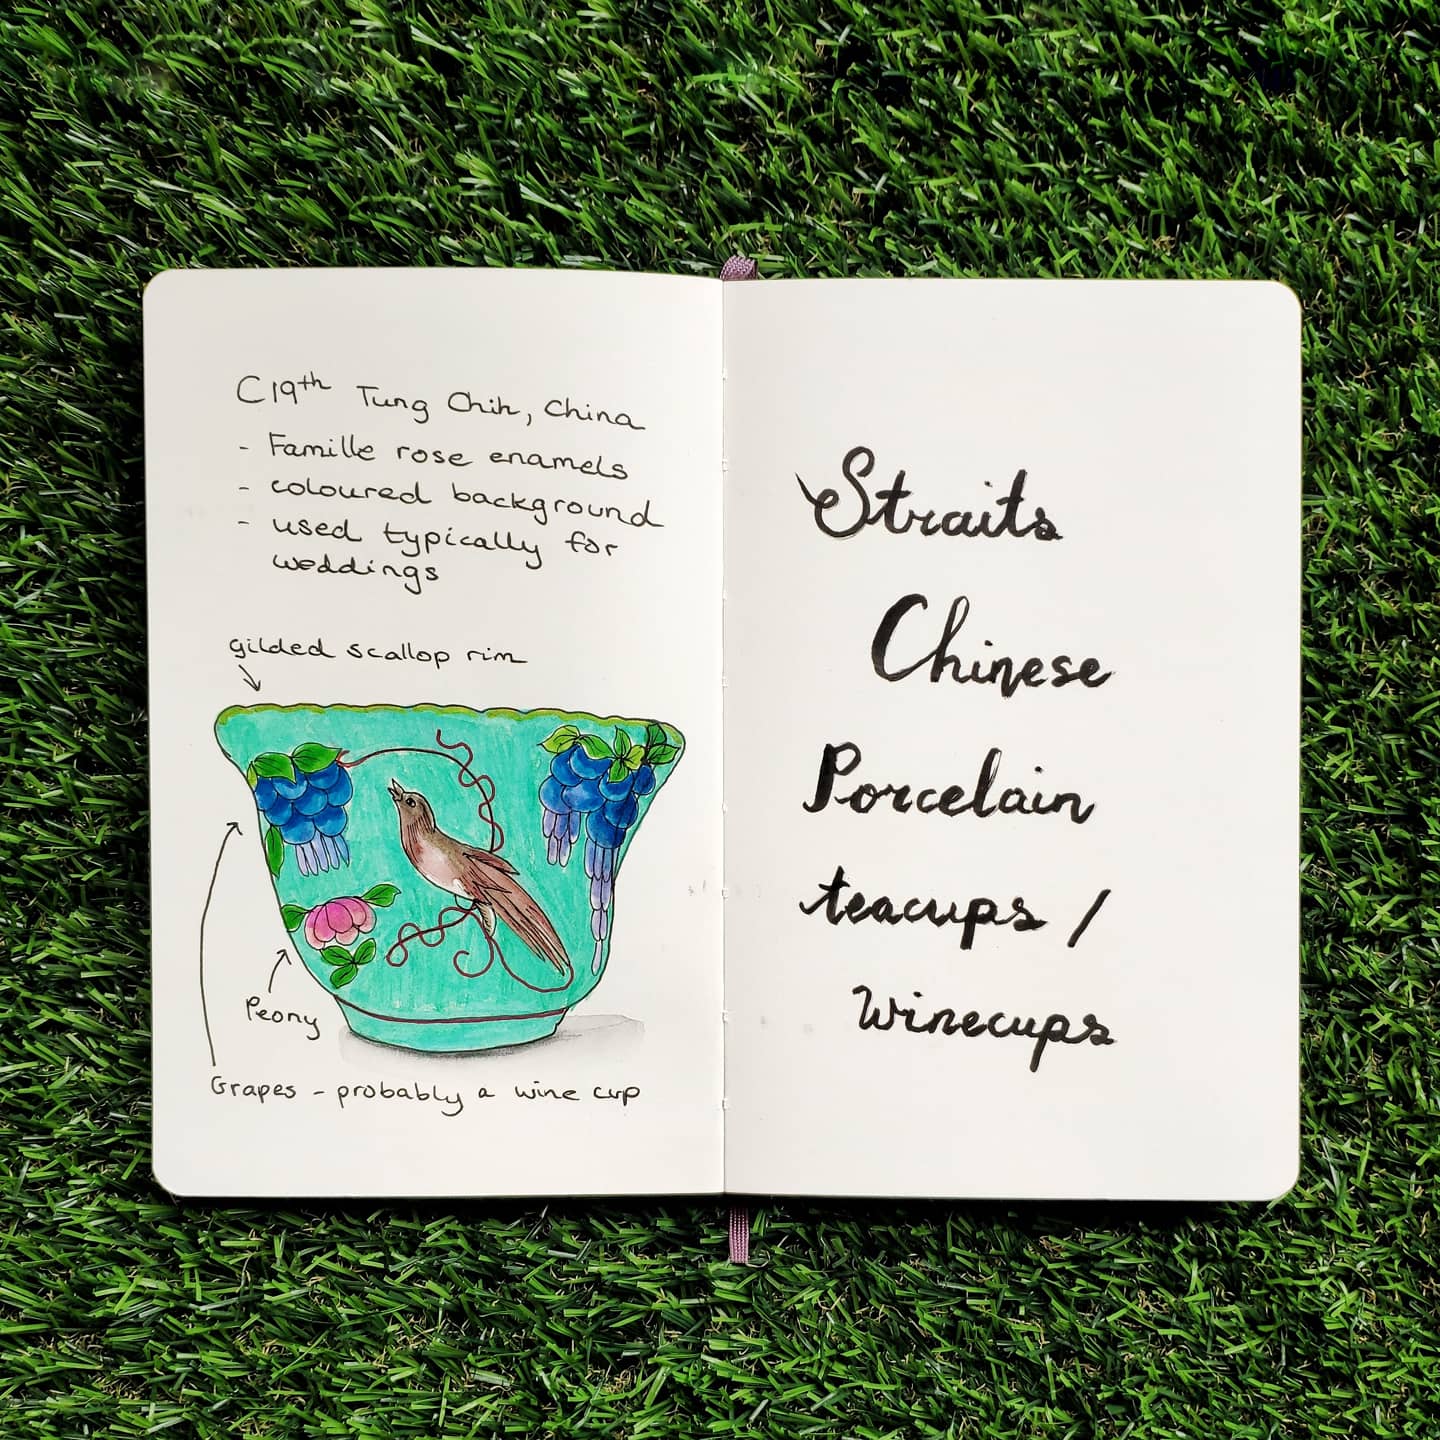 C19th Tung Chih, China
- Famille rose enamels
- coloured background
- used typically for
weddings
gilded scallop rim
Peony
Grapes - probably a wine cup
Straits
Chinese
Porcelain
teacups /
Winecups